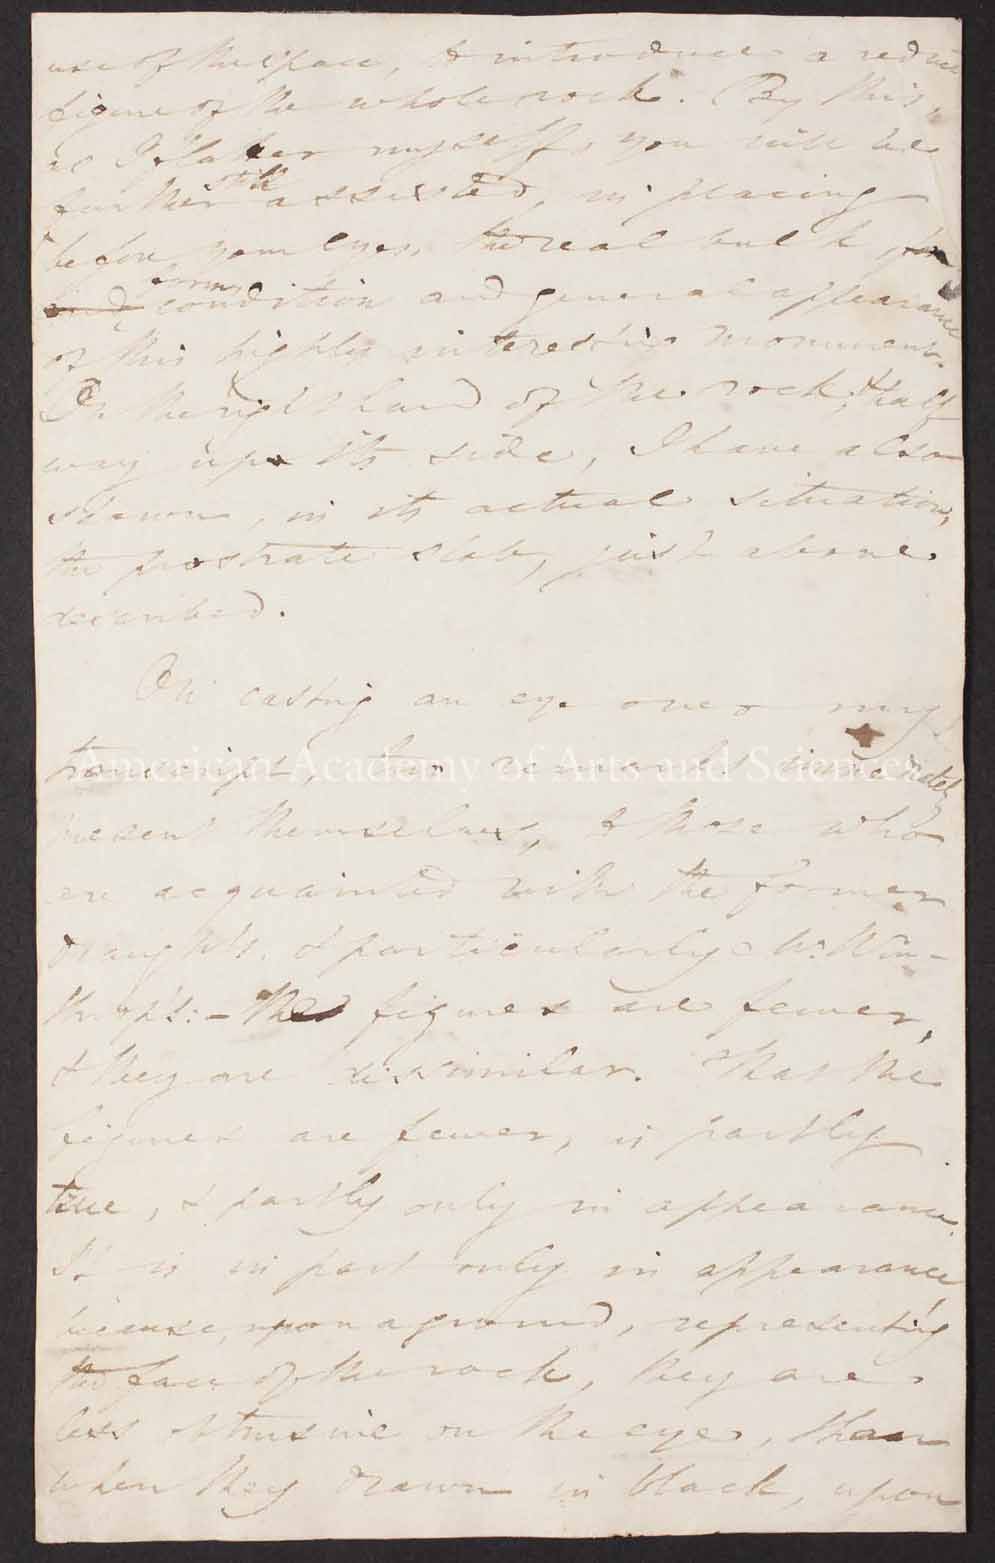 use of the space, to introduce a reduced
figure of the whole rock. By this,
as I flatter myself, you will be
further still assisted, in placing
before your eyes, the real bulk,
and form, condition and general appearance
of this highly interesting monument.
On the right hand of the rock, & half
way up its side, I have also
shewn, in its actual situation,
the prostrate slab, just above
described.
On casting an eye over my
transcript, two remarks immediately
present themselves, to those who
are acquainted with the former
draughts, & particularly Mr. Win-
throp's: – The figures are fewer,
& they are dissimilar. That the
figures are fewer, is partly
true, & partly only in appearance.
It is in part only in appearance,
because, upon a ground, representing
the face of the rock, they are
less obtrusive on the eye, than
when they drawn in black, upon
American Academy of Arts and Sciences